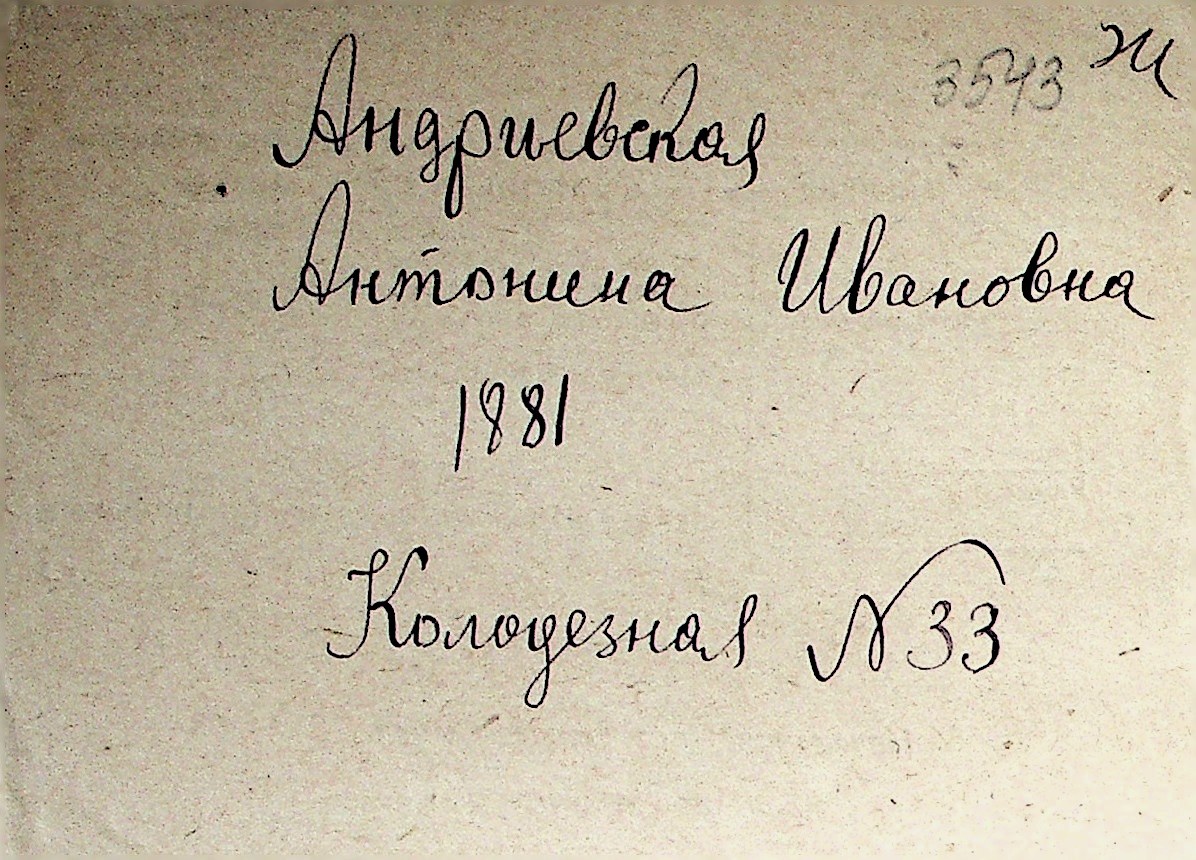 3543 Ж
Андриевская
Антонина Ивановна
1881
Колодезная N 33